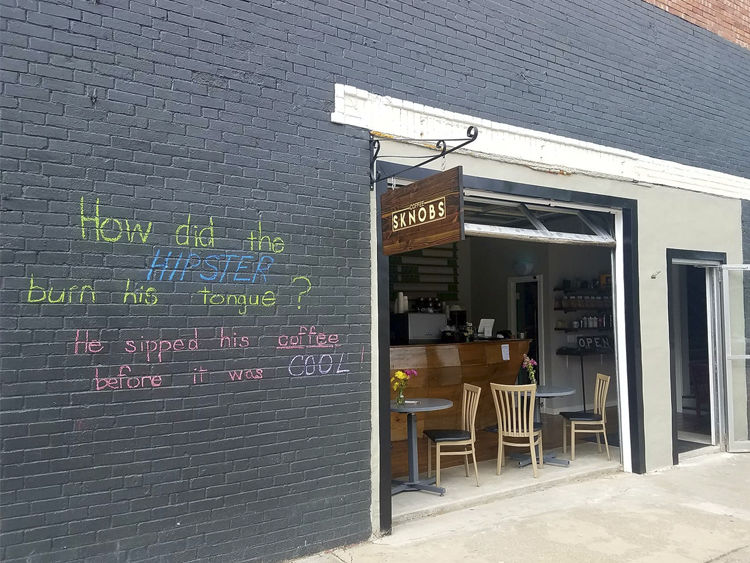 How did the
HIPSTER
burn his tongue?
He sipped his coffee
before it was COOL!
COFFEE
SKNOBS
OPEN